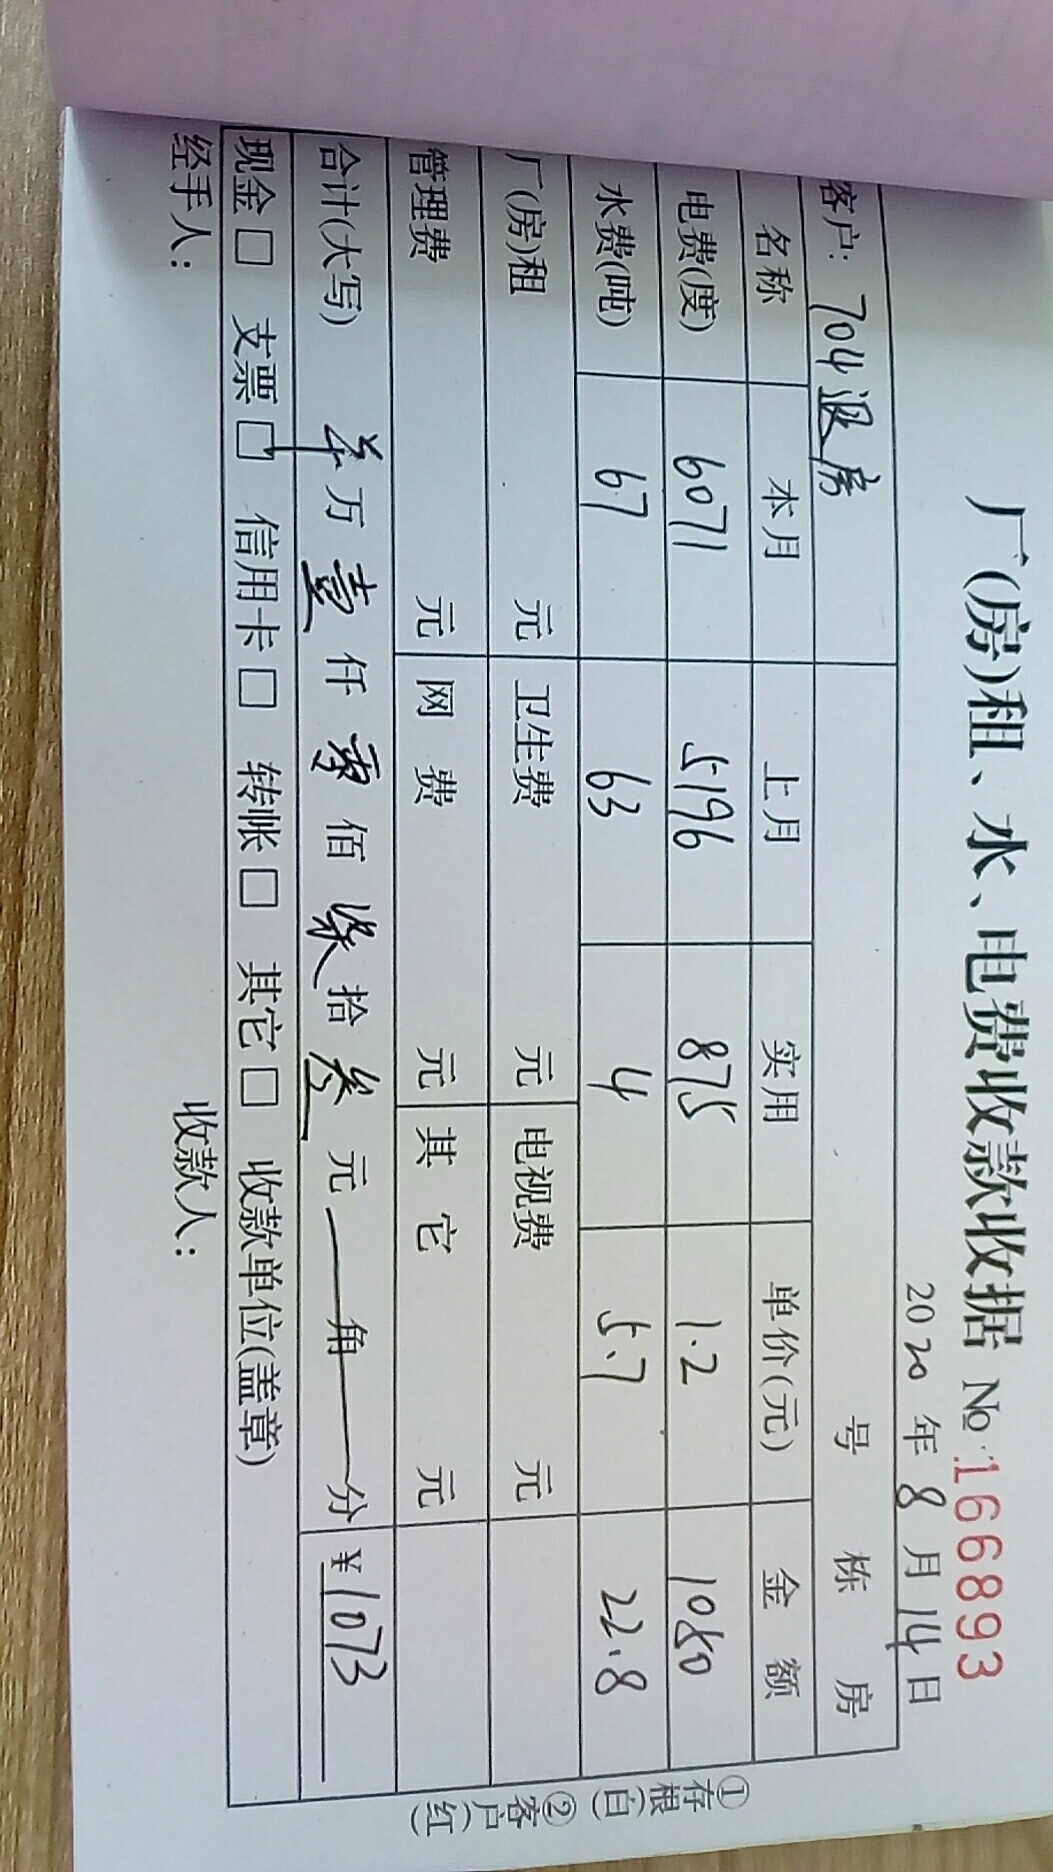 厂(房)租、水、电费收款收据 № 1668893
2020 年 8 月 14 日
客户: 704退房 号 栋 房
名称 本月 上月 实用 单价(元) 金额
电费(度) 6071 5196 875 1.2 1050
水费(吨) 67 63 4 5.7 22.8
厂(房)租 元 卫生费 元 电视费 元
管理费 元 网费 元 其它 元
合计(大写) 万 壹 仟 零 佰 柒 拾 叁 元 角 分 ¥1073
现金□ 支票□ 信用卡□ 转帐□ 其它□ 收款单位(盖章)
经手人: 收款人:
①存根(白) ②客户(红)